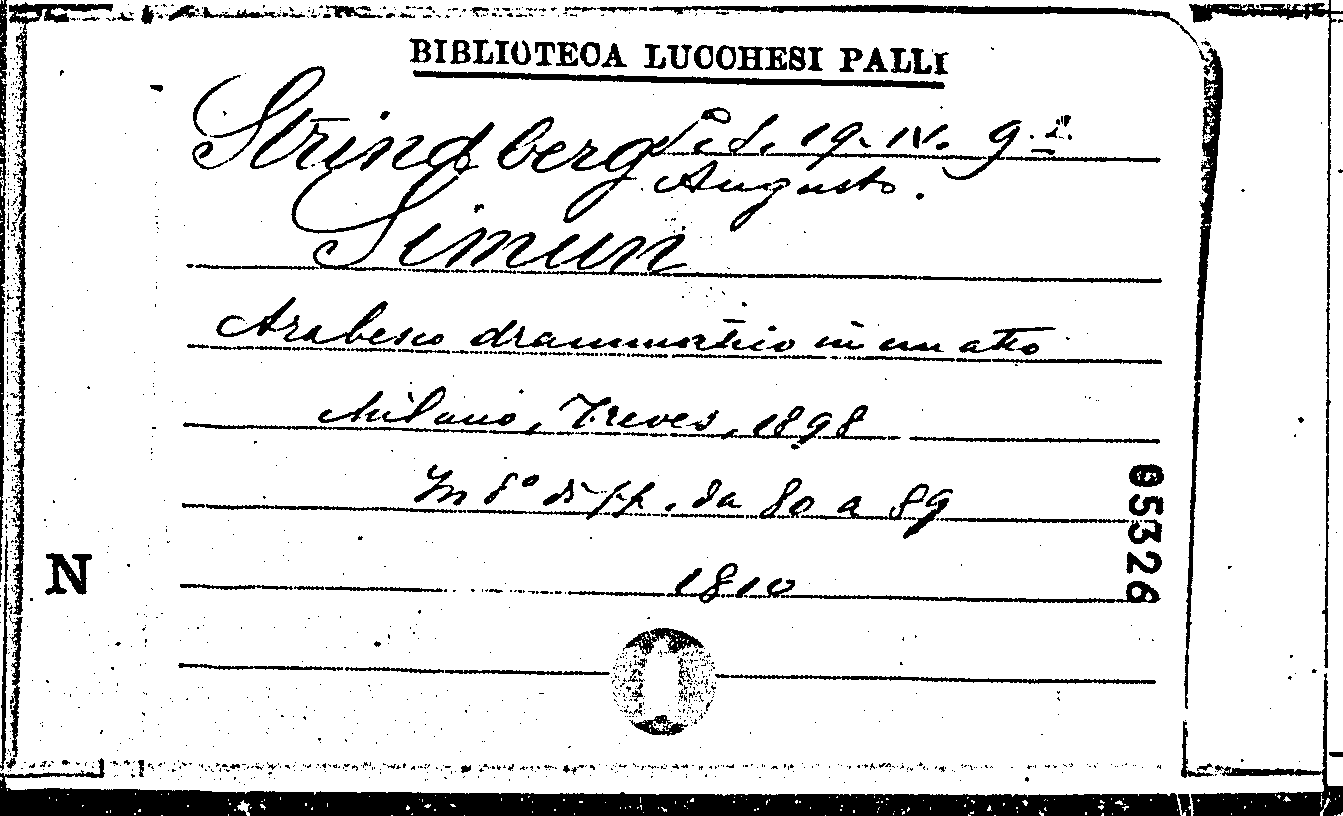 BIBLIOTECA LUCCHESI PALLI
Strindberg Ped. 19. IV. 9.
Augusto.
Simun
Arabesco drammatico in un atto
Milano, Treves, 1898
In 8° di pp. da 80 a 89
1810
N
05326